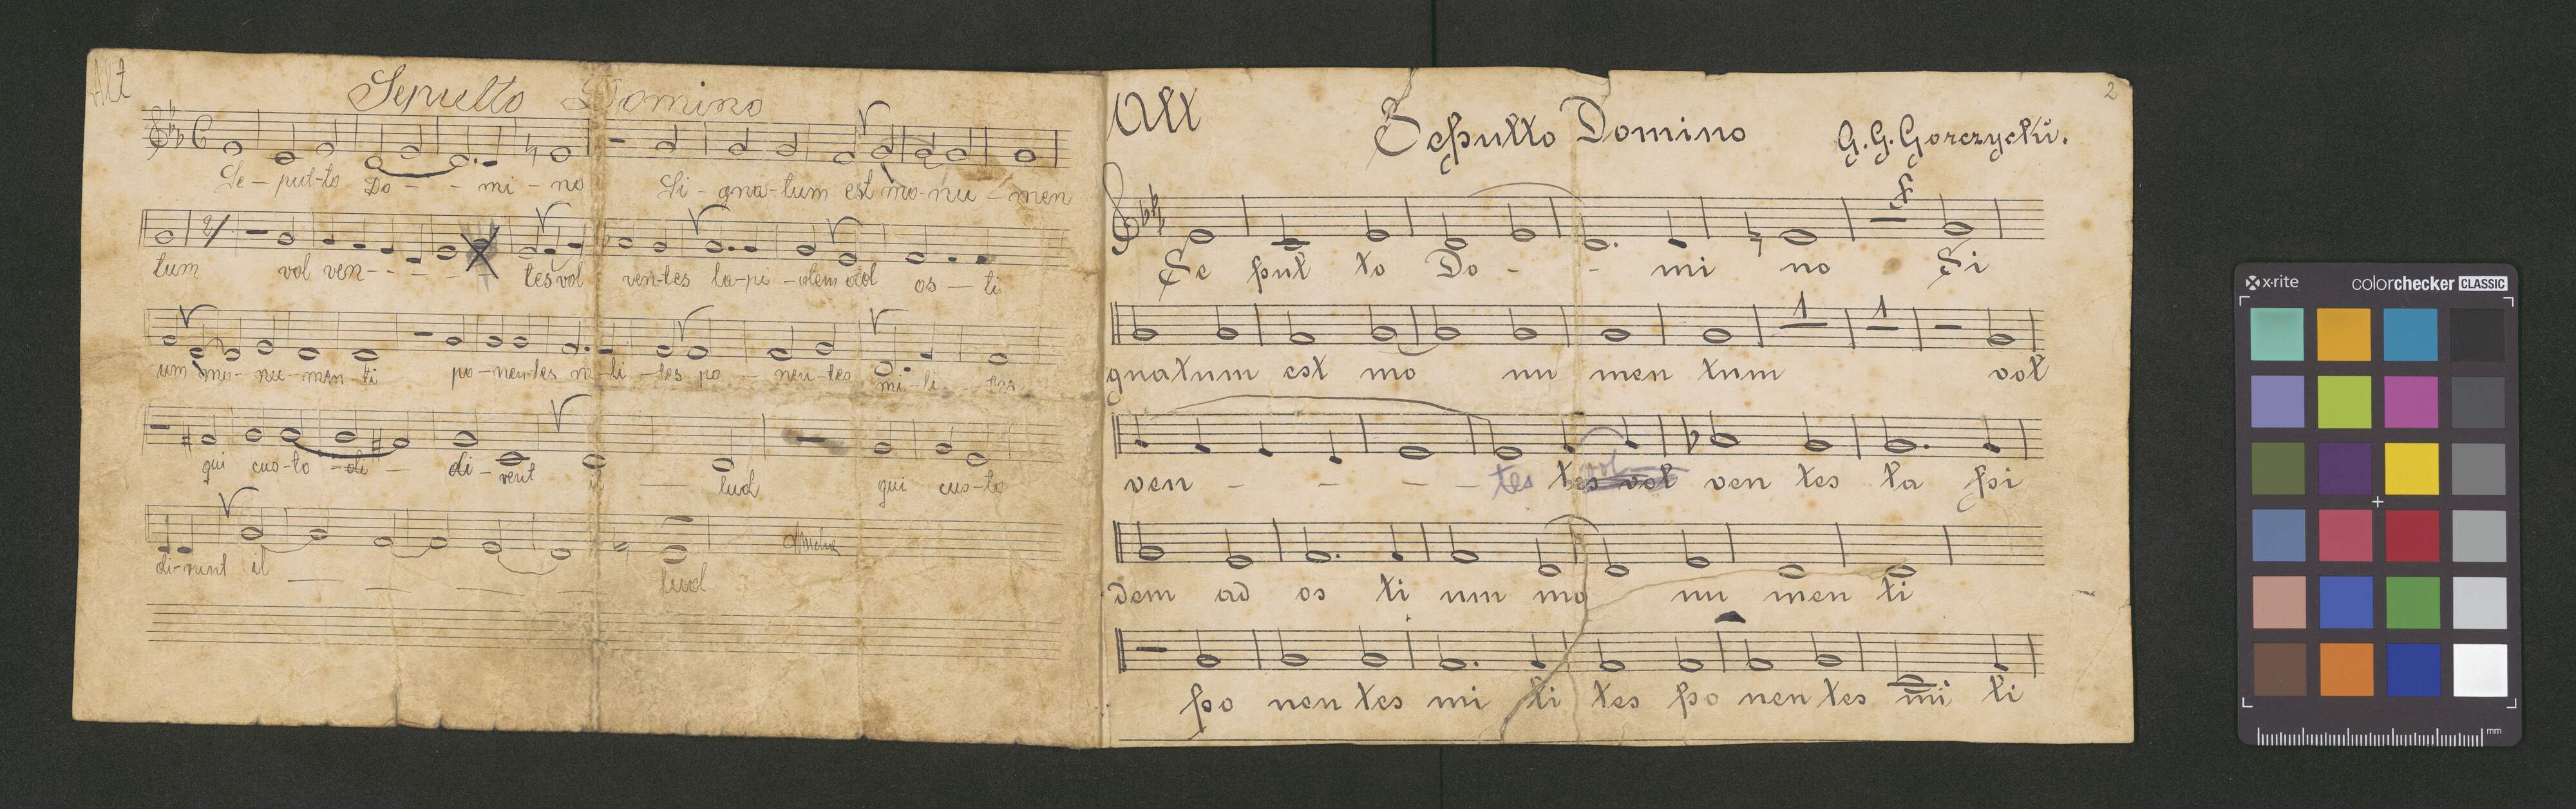 Alt
Sepulto Domino
Se - pul-to Do - - mi - no Si - gna-tum est mo-nu - men
tum vol ven - - - - tes vol ven-tes la-pi - dem ad os - ti
um mo - nu - men - ti po - nen-tes mi-li - tes po - nen-tes mi - li tes
qui cus-to - di - di - rent il — lud qui cus-to
di-runt il — — — — lud
2
Alt
Sepulto Domino
G. G. Gorczycki.
f
Se pul to Do - - mi no Si
1 1
gnatum est mo nu men tum vol
ven - - - - tes tes vol vol ven tes la pi
dem ad os ti um mo nu men ti
po nen tes mi li tes po nen tes mi li
x-rite colorchecker CLASSIC
mm